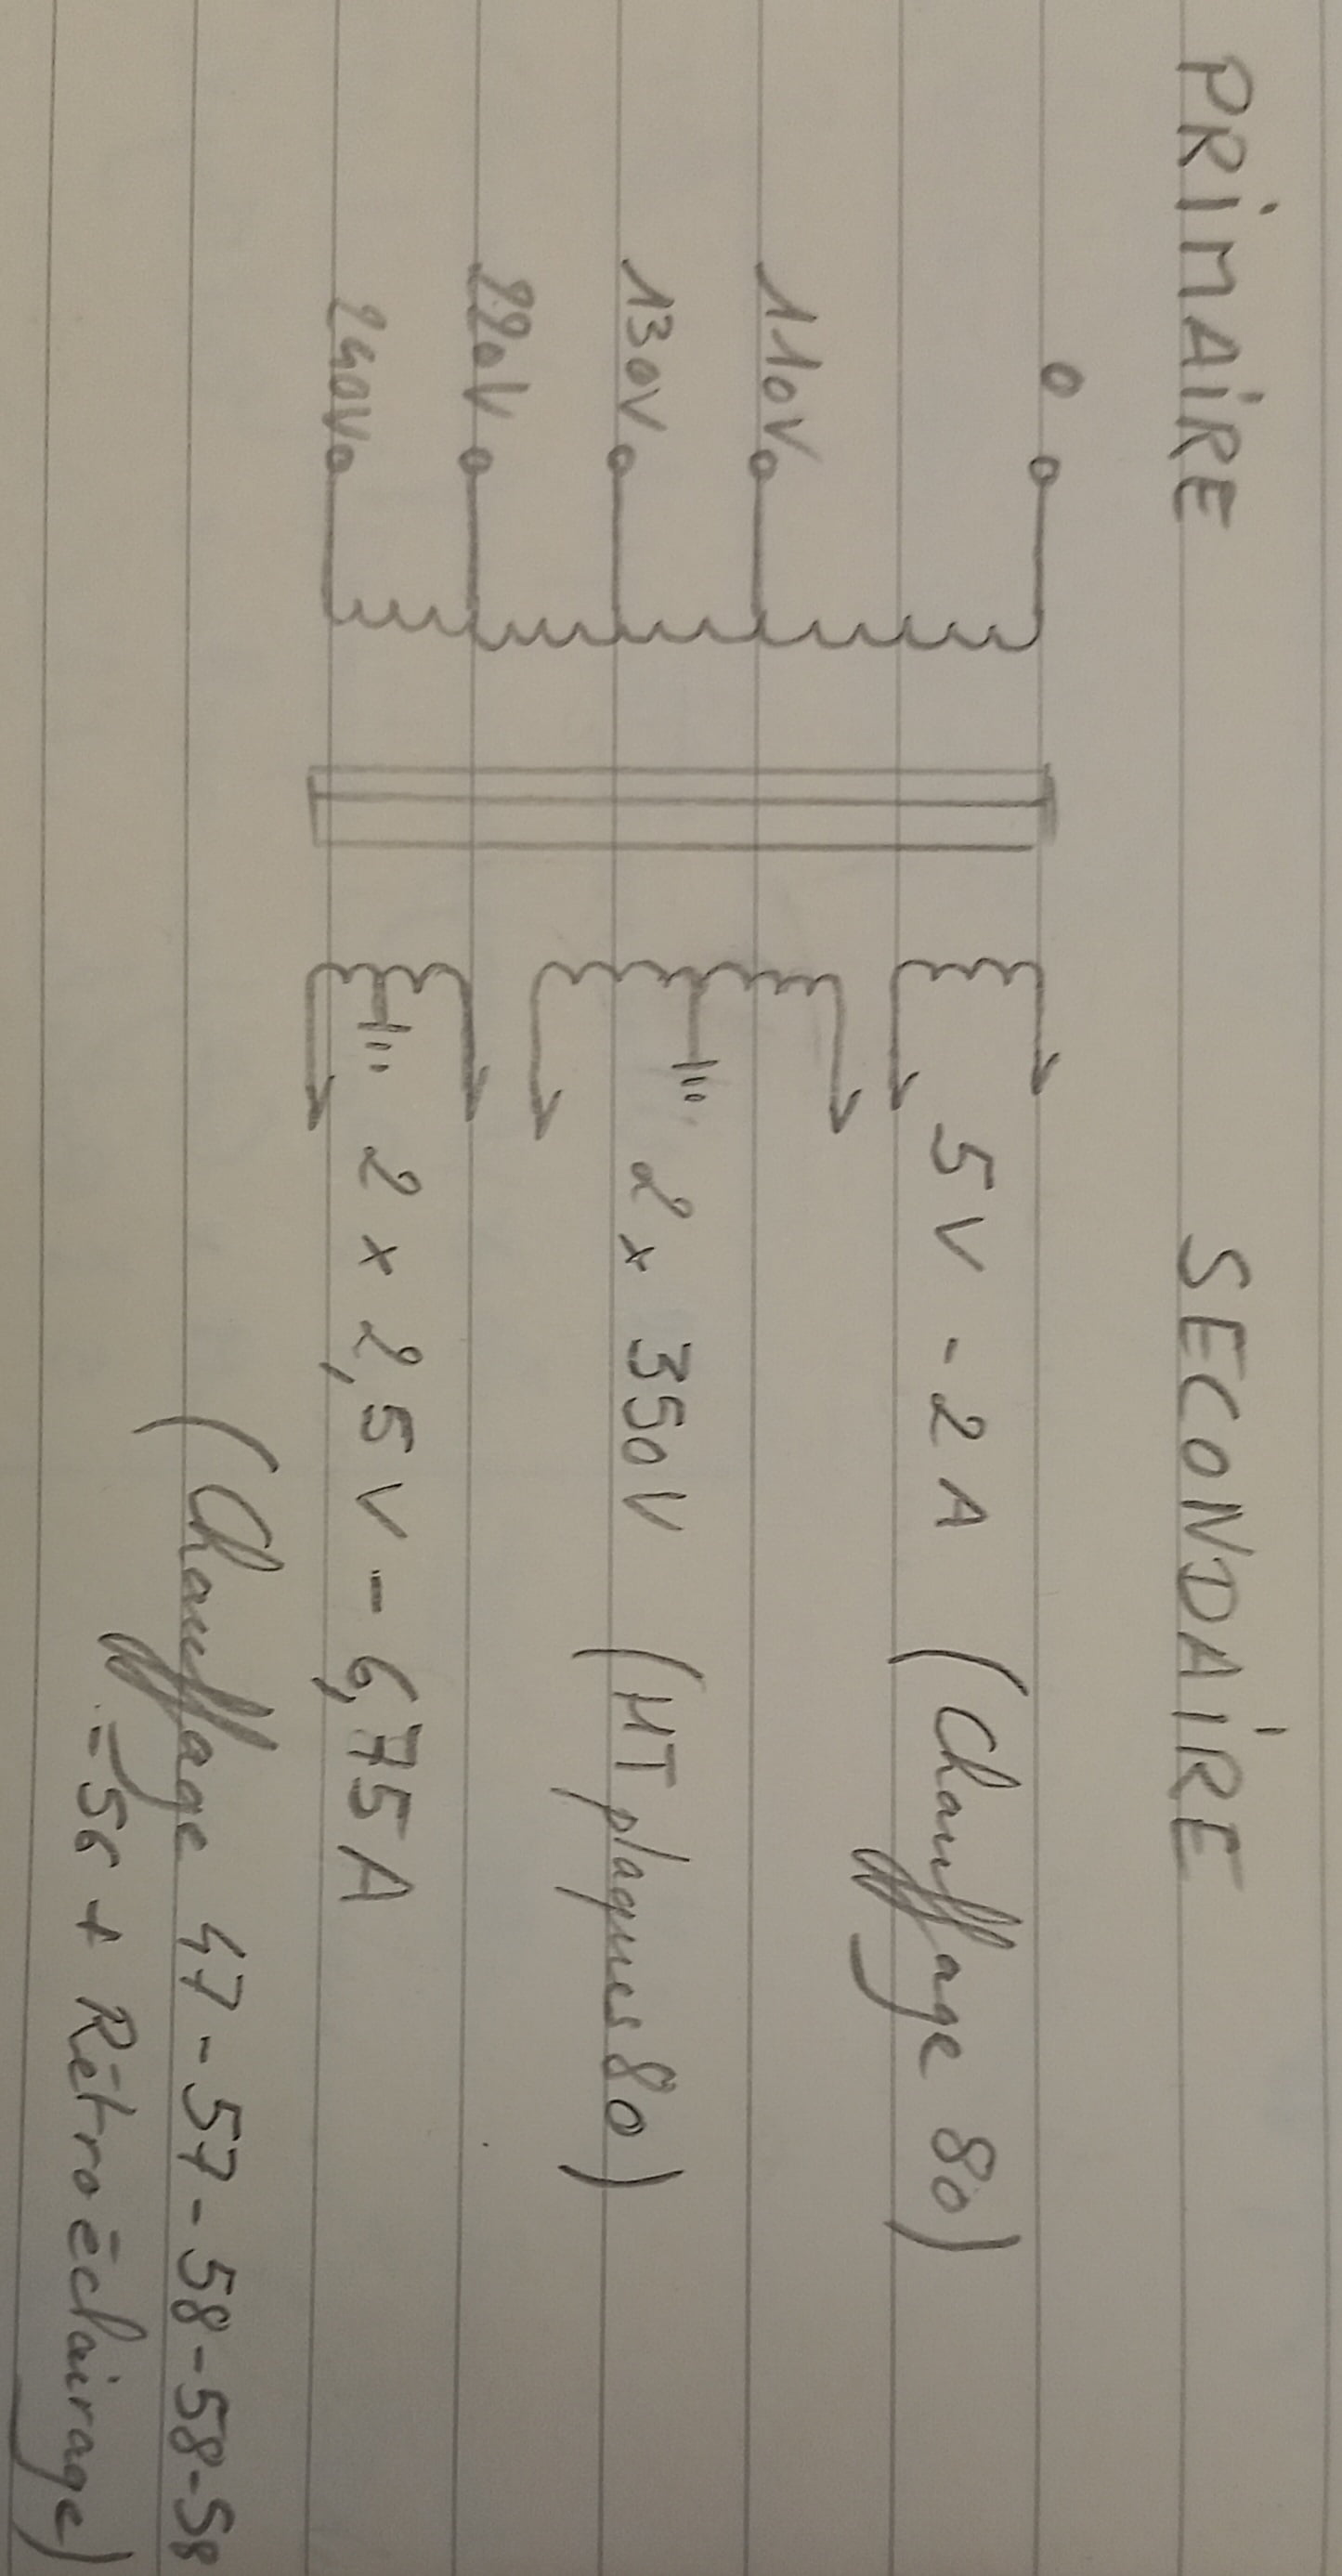 PRIMAIRE SECONDAIRE
0
5V - 2A (Chauffage 80)
110V
130V
2 x 350V (HT plaques 80)
220V
240V
2 x 2,5V - 6,75A
(Chauffage 47 - 57 - 58 - 58 - 58
= 56 + Rétro éclairage)